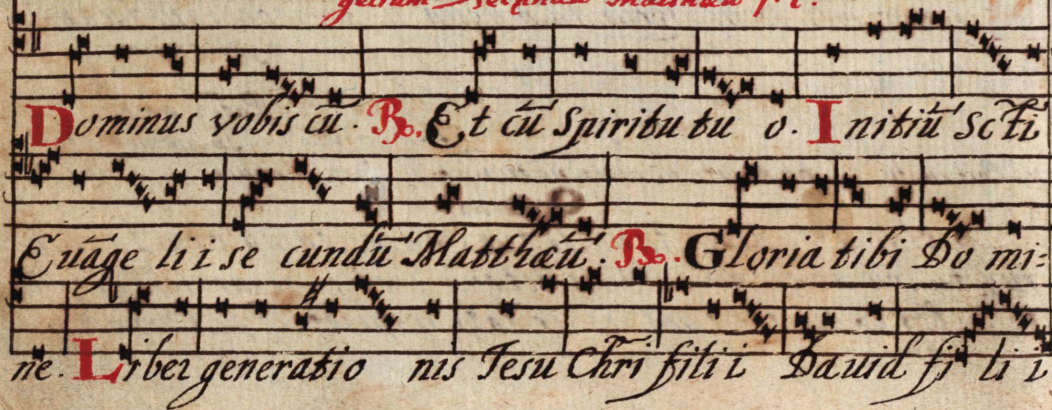 Dominus vobis cū. ℟. Et cū Spiritu tu o. Initiū Scti
Euāge lii se cundū Matthæū. ℟. Gloria tibi Do mi-
ne. Liber generatio nis Jesu Chri filii Dauid fi li i